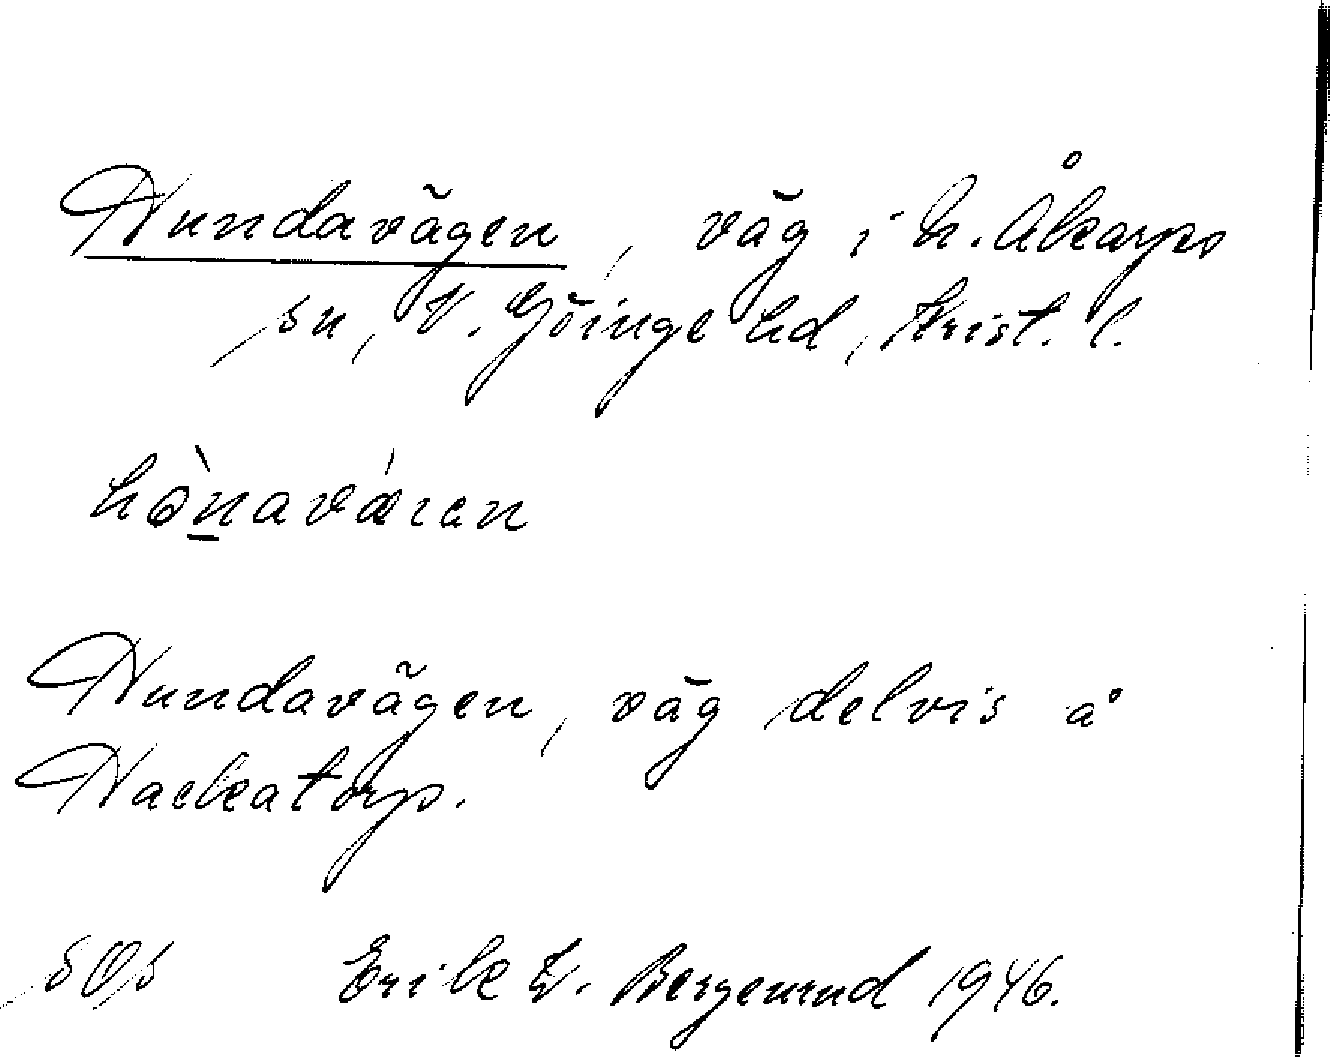 Hundavägen, väg i N. Åkarps
sn, V. Göinge hd, Krist. l.
hònavǽren
Hundavägen, väg delvis å
Hackatorp.
Erik W. Bergenrud 1946.